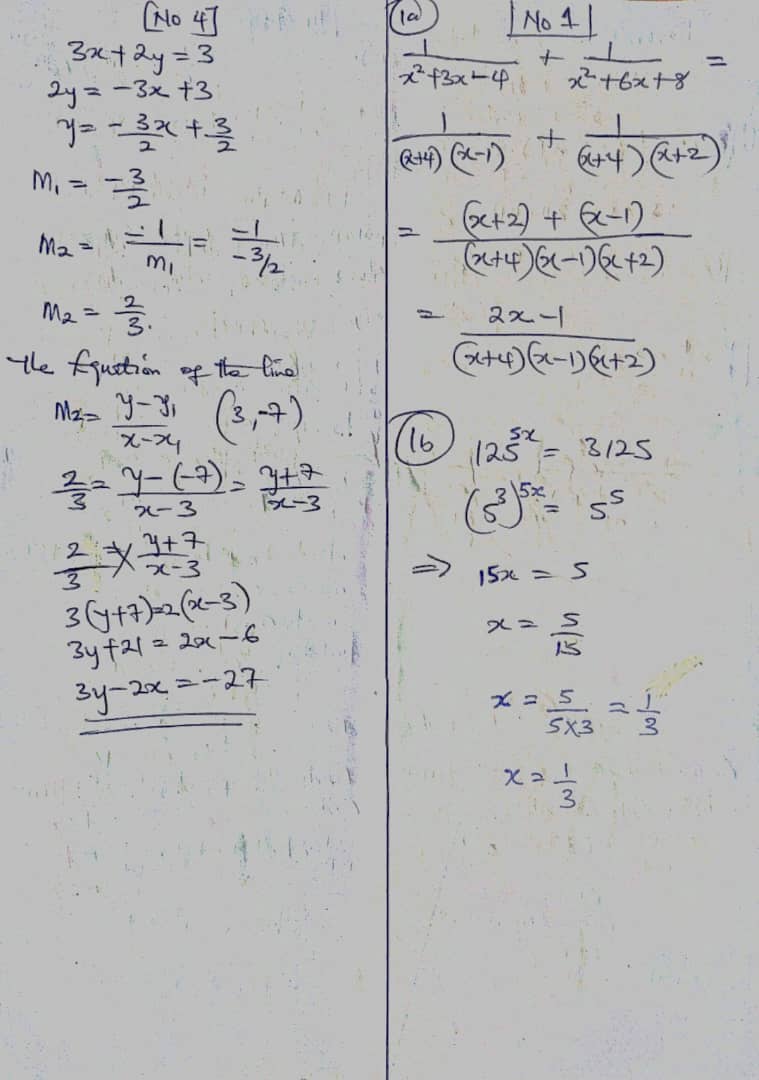 [No 4]
3x + 2y = 3
2y = -3x + 3
y = -3x/2 + 3/2
M₁ = -3/2
M₂ = -1/m₁ = -1/-3/2
M₂ = 2/3.
the Equation of the line
M₂ = y-y₁/x-x₁ (3,-7)
2/3 = y-(-7)/x-3 = y+7/x-3
2/3 = y+7/x-3
3(y+7)=2(x-3)
3y+21 = 2x-6
3y-2x = -27
1a No 1
1/x²+3x-4 + 1/x²+6x+8 =
1/(x+4)(x-1) + 1/(x+4)(x+2)
= (x+2) + (x-1)/(x+4)(x-1)(x+2)
= 2x-1/(x+4)(x-1)(x+2)
1b 125⁵ˣ = 3125
(5³)⁵ˣ = 5⁵
⇒ 15x = 5
x = 5/15
x = 5/5×3 = 1/3
x = 1/3